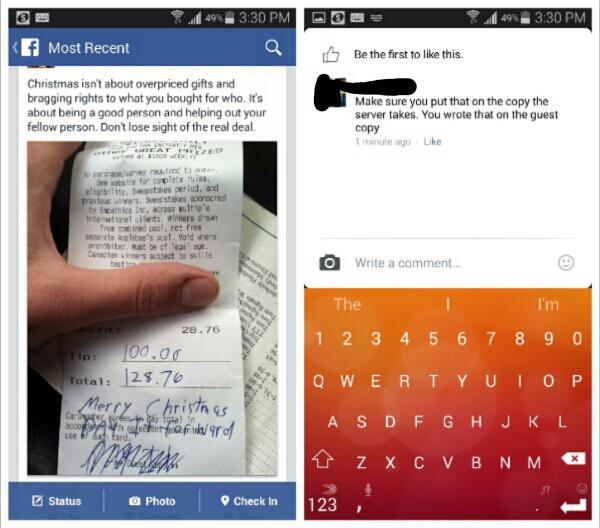 49% 3:30 PM
Most Recent
Christmas isn't about overpriced gifts and
bragging rights to what you bought for who. It's
about being a good person and helping out your
fellow person. Don't lose sight of the real deal.
other GREAT PRIZES
valued at $1500 WEEKLY!
No purchase/survey required to enter.
See website for complete rules,
eligibility, Sweepstakes period, and
previous winners. Sweepstakes sponsored
by Empathica Inc, across multiple
international clients. Winners drawn
from combined pool, not from
separate Applebee's pool. Void where
prohibited. Must be of legal age.
Canadian winners subject to skills
28.76
Tip: 100.00
Total: 128.76
Merry Christmas
Pay it Forward
agrees to pay total in
agreement governing
use of such card.
Status
Photo
Check In
49% 3:30 PM
Be the first to like this.
Make sure you put that on the copy the
server takes. You wrote that on the guest
copy
1 minute ago · Like
Write a comment...
The I I'm
1 2 3 4 5 6 7 8 9 0
Q W E R T Y U I O P
A S D F G H J K L
Z X C V B N M
123 , . ,!?